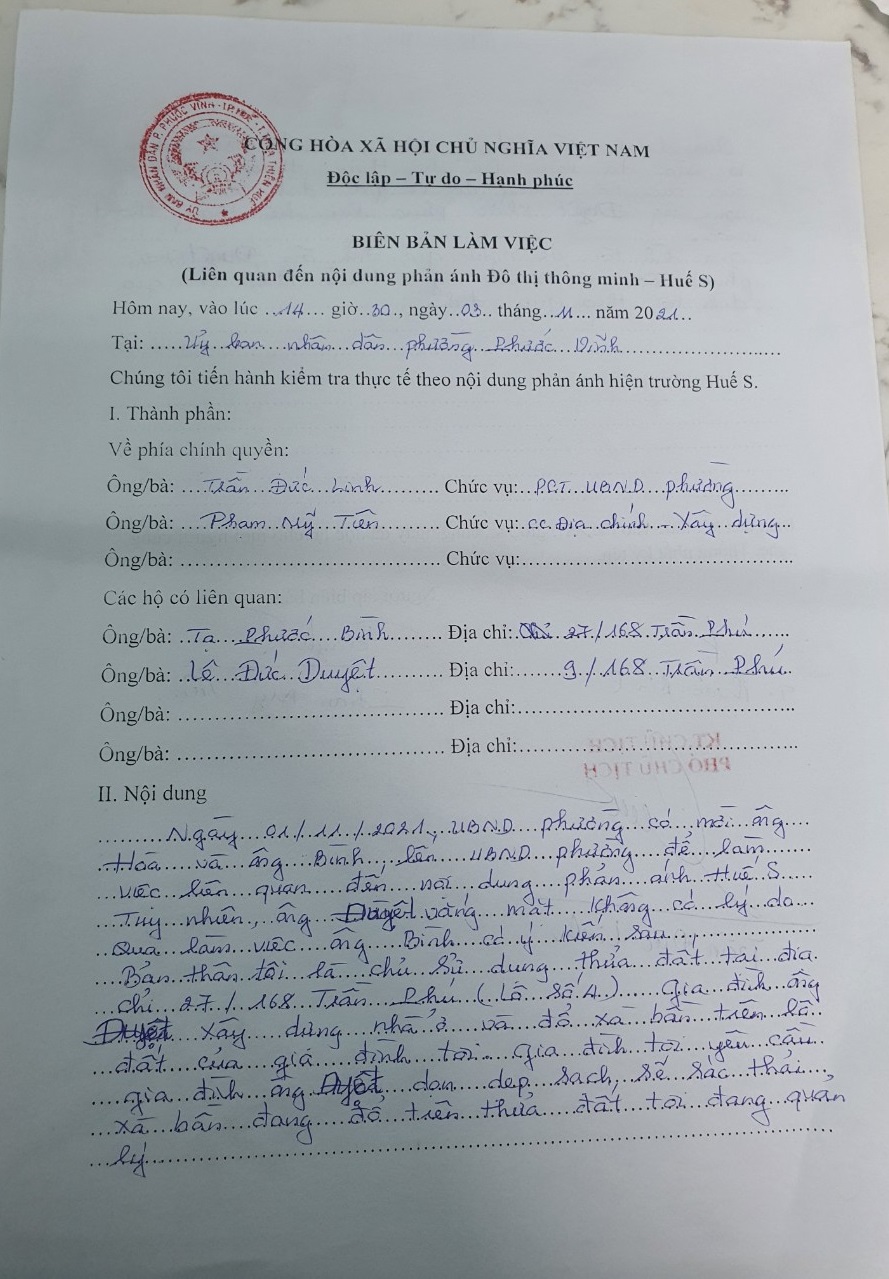 ỦY BAN NHÂN DÂN P. PHƯỚC VĨNH - TP HUẾ - T. THỪA THIÊN HUẾ
CỘNG HÒA XÃ HỘI CHỦ NGHĨA VIỆT NAM
Độc lập – Tự do – Hạnh phúc
BIÊN BẢN LÀM VIỆC
(Liên quan đến nội dung phản ánh Đô thị thông minh – Huế S)
Hôm nay, vào lúc ..14... giờ..30.., ngày..03.. tháng...11... năm 2021..
Tại: .....Uỷ...ban....nhân...dân...phường...Phước...Vĩnh.....................
Chúng tôi tiến hành kiểm tra thực tế theo nội dung phản ánh hiện trường Huế S.
I. Thành phần:
Về phía chính quyền:
Ông/bà: ...Trần...Đức...Linh......... Chức vụ:..P.CT...UBND...phường.........
Ông/bà: ...Phạm..Mỹ..Tiên......... Chức vụ:.CC.Địa..chính...Xây..dựng..
Ông/bà: ................................. Chức vụ:.......................................
Các hộ có liên quan:
Ông/bà: ..Tạ...Phước...Bình........ Địa chỉ: 27/168.Trần..Phú......
Ông/bà: ..Lê...Đức..Duyệt......... Địa chỉ:.......9./.168..Trần..Phú..
Ông/bà: ................................. Địa chỉ:.......................................
Ông/bà: ................................. Địa chỉ:.......................................
KT.CHỦ TỊCH
PHÓ CHỦ TỊCH
II. Nội dung
..........Ngày...01./.11../.2021.,.UBND....phường...có...mời..ông....
..Hòa....và...ông...Bình..,.lên...UBND...phường...để...làm.......
...việc..liên...quan....đến...nội..dung...phản...ánh..Huế..S......
...Tuy..nhiên.,.ông...Duyệt.vắng...mặt....không...có..lý..do....
..Qua..làm..việc...ông....Bình..có.ý..kiến..sau..:...............
...Bản..thân..tôi..là...chủ..sử..dụng...thửa..đất..tại..địa.
...chỉ..27./.168..Trần...Phú..(.Lô..số.4.).....Gia..đình..ông
Duyệt..xây..dựng..nhà.ở...và..đổ..xà..bần..trên..lô..
...đất....của..gia....đình...tôi...Gia..đình..tôi..yêu..cầu..
....gia..đình..ông..Duyệt..dọn...dẹp...sạch,.sẽ..sắc..thải...,
....xà..bần...đang...đổ..trên..thửa...đất..tôi..đang..quản
...lý..........................................................